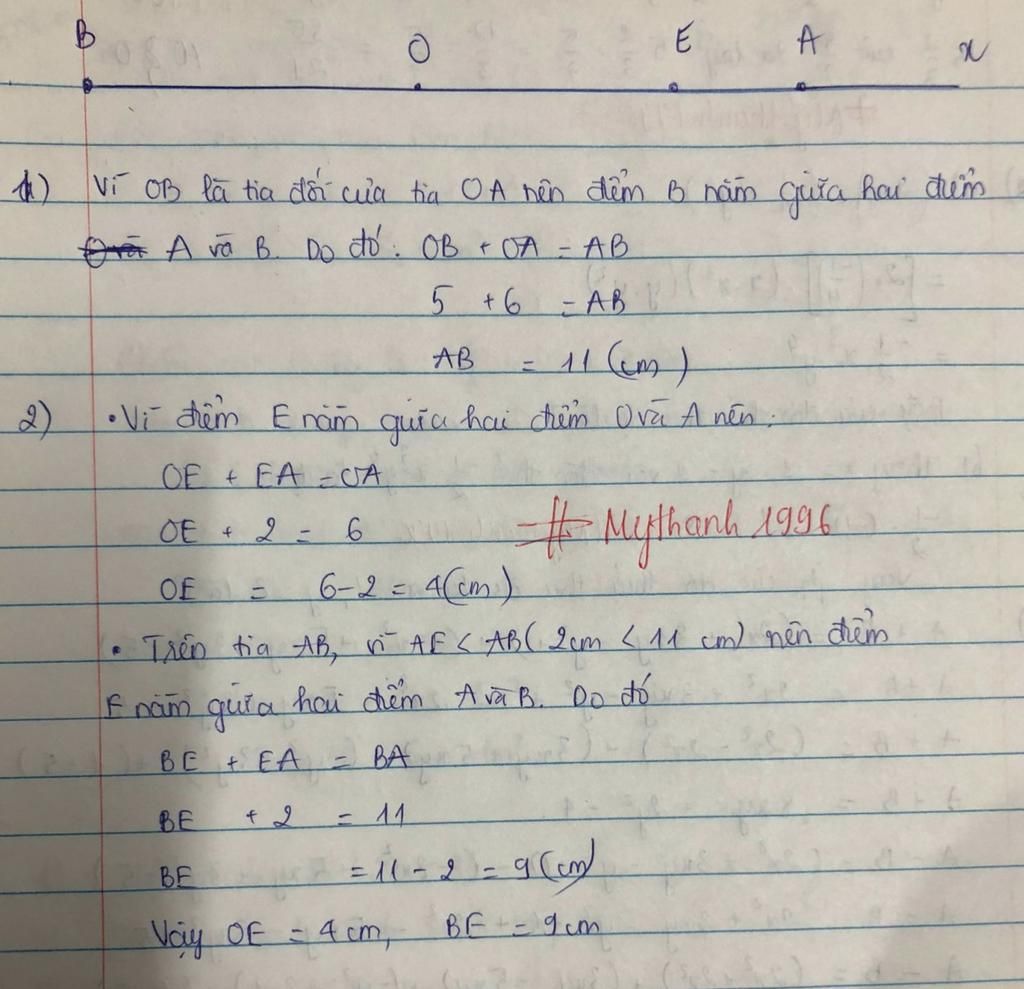 B O E A x
1) Vì OB là tia đối của tia OA nên điểm B nằm giữa hai điểm
A và B. Do đó: OB + OA = AB
5 + 6 = AB
AB = 11 (cm)
2) • Vì điểm E nằm giữa hai điểm O và A nên:
OE + EA = OA
OE + 2 = 6
# Mythanh 1996
OE = 6 - 2 = 4 (cm)
• Trên tia AB, vì AE < AB (2cm < 11 cm) nên điểm
E nằm giữa hai điểm A và B. Do đó
BE + EA = BA
BE + 2 = 11
BE = 11 - 2 = 9 (cm)
Vậy OE = 4 cm, BE = 9 cm